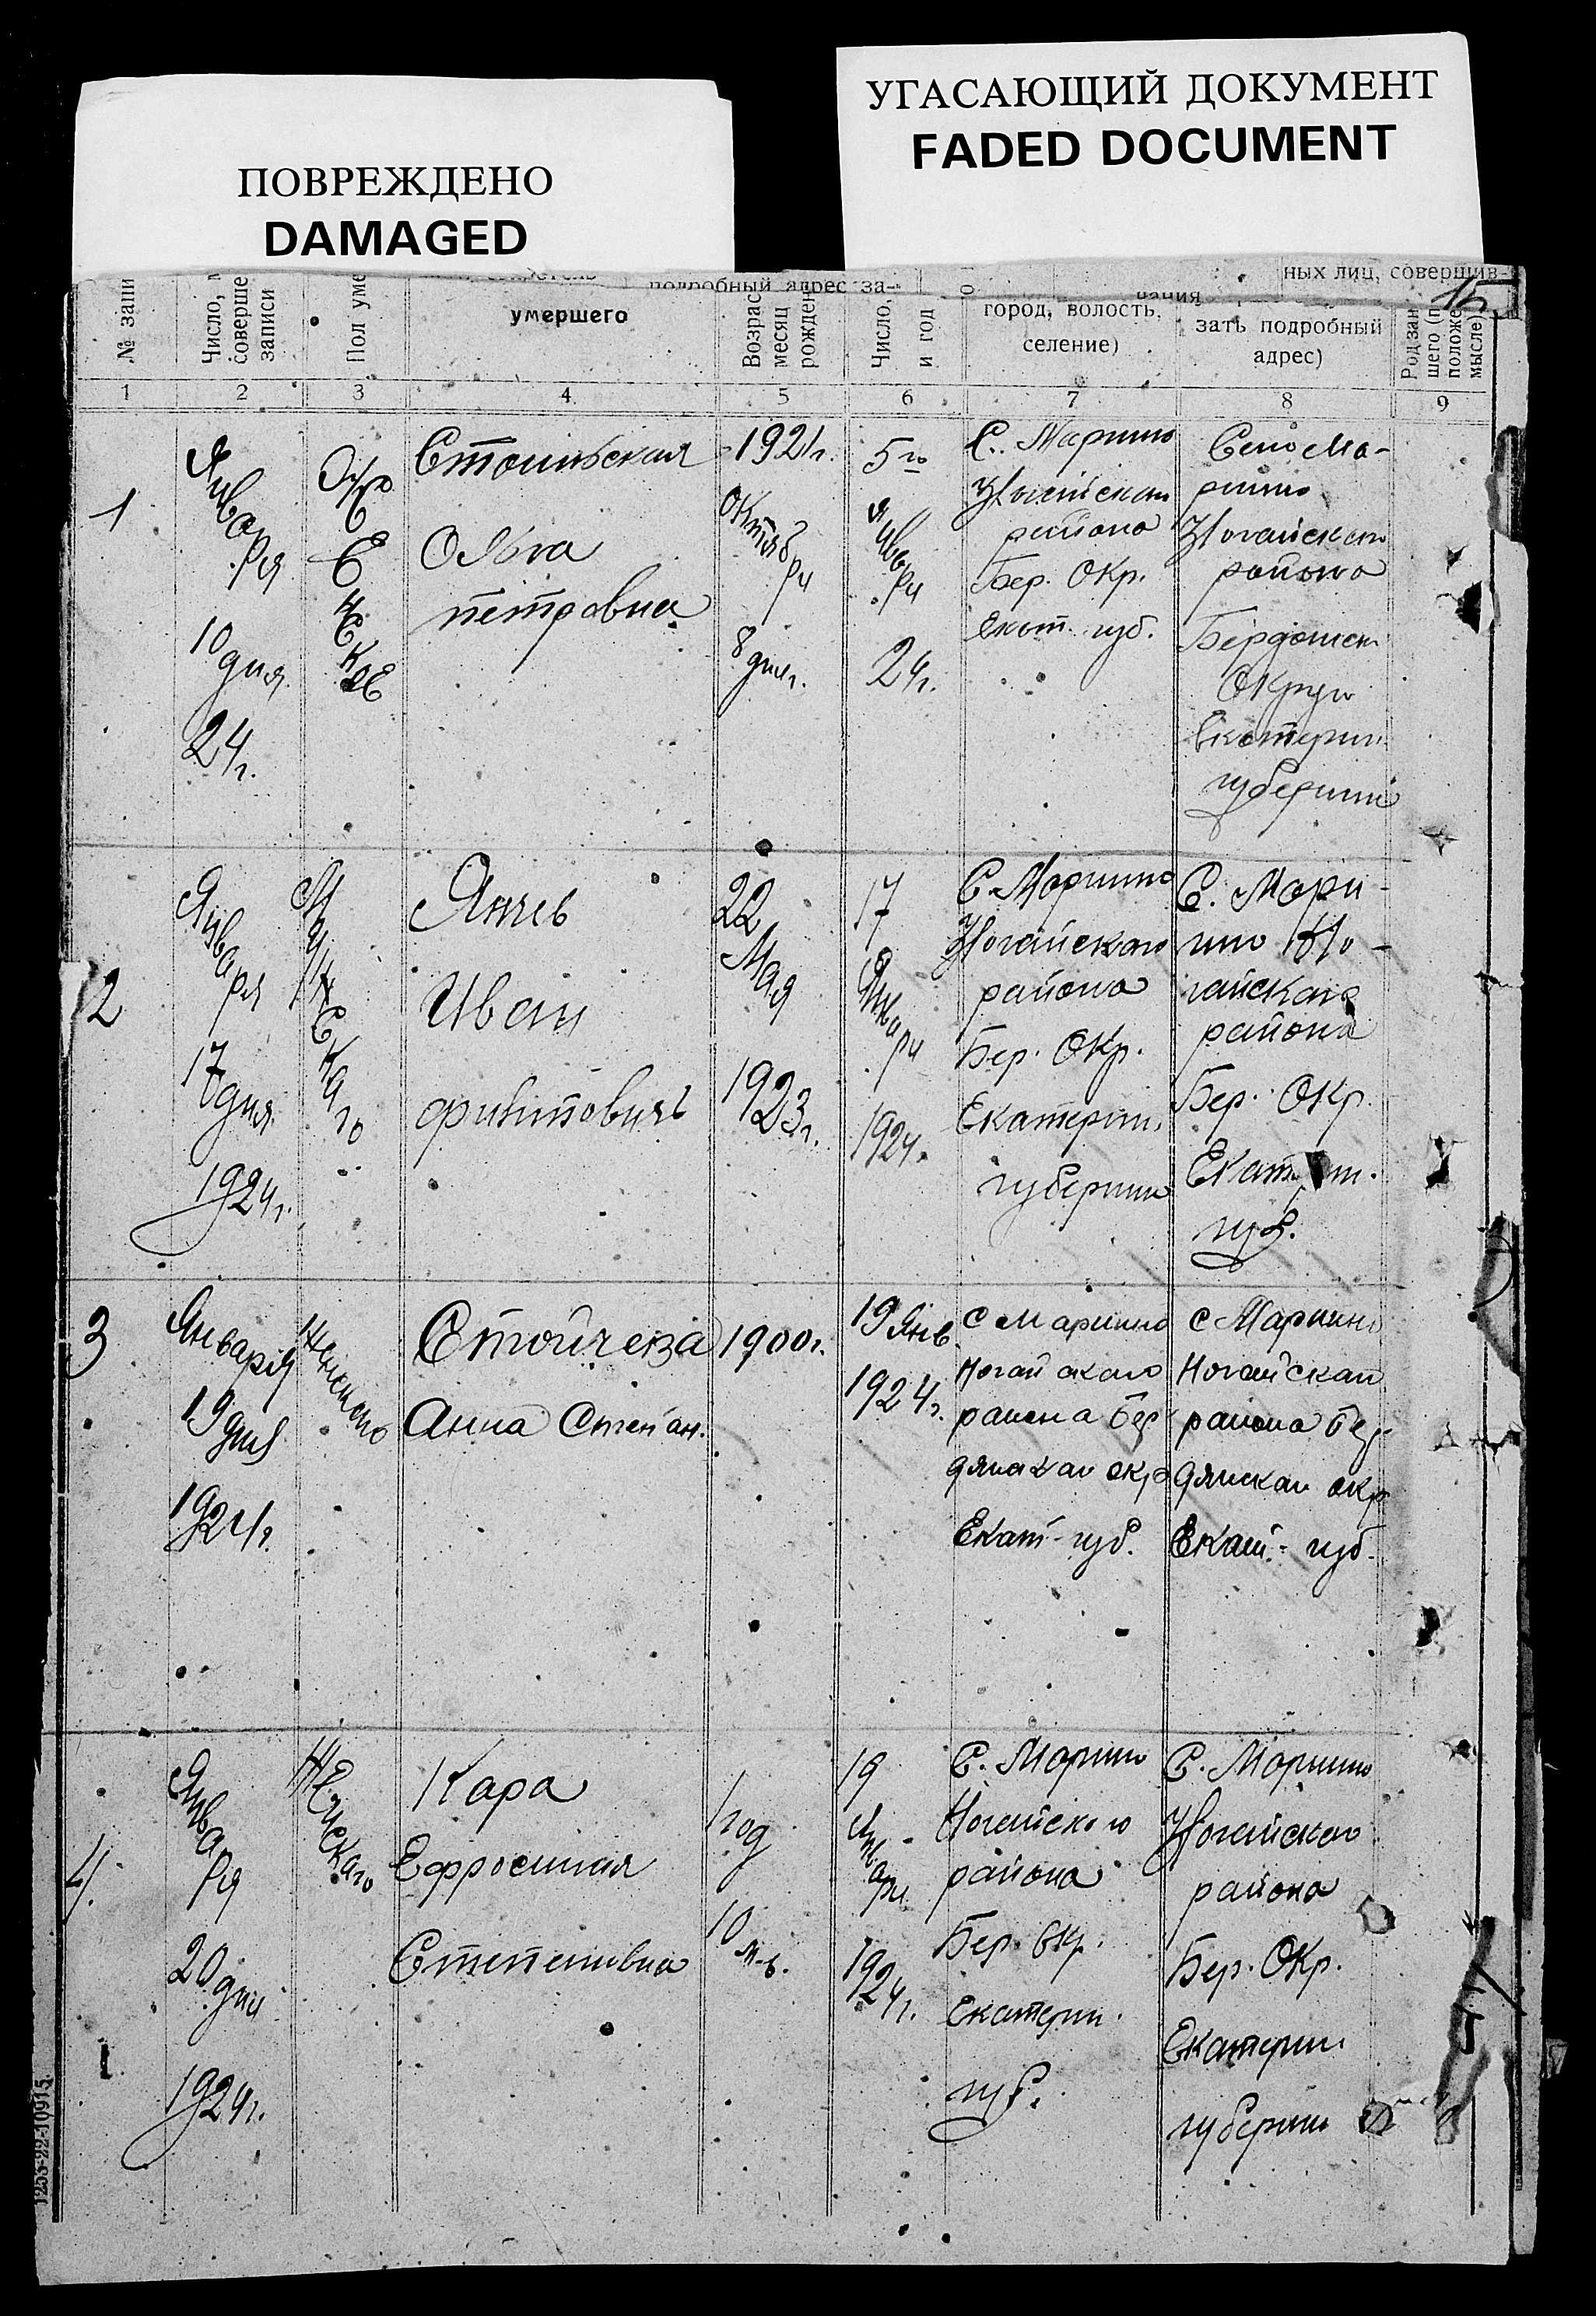 УГАСАЮЩИЙ ДОКУМЕНТ
FADED DOCUMENT
ПОВРЕЖДЕНО
DAMAGED
15
подробный адрес за-
ных лиц, соверщив-
№ запи
Число,
соверше
записи
Пол уме
умершего
Возрас
месяц
рожден
Число,
и год
город, волость,
селение)
зать подробный
адрес)
Род зан
шего (п
положе
мысле)
1 2 3 4 5 6 7 8 9
1
Января
10 дня
24 г.
Женское
Ольга
петровна
1921 г.
Октября
8 дня
5го
Января
24 г.
С. Марино
района
Бер. Окр.
Екат. губ.
Село Ма-
рино
Ногайского
района
Бердянск
Округа
Екатерин.
губернии
2
Января
17 дня
1924 г.
Мужскаго
Янчев
Иван
22
Мая
1923 г.
17
Января
1924.
С. Марино
Ногайского
района
Бер. Окр.
Екатерин.
губернии
С. Мари-
но Но-
гайскаго
района
Бер. Окр.
губ.
3
Января
19 дня
1924 г.
Женского
Стойчева
Анна Степан.
1900 г.
19 Янв
1924 г.
с Марино
Ногайскаго
района Бер
дянскаго окр
Екат-губ.
с Марино
Ногайскаго
района Бер-
дянскаго окр
Екат-губ.
4.
Января
20 дня
1924 г.
Женскаго
Кара
Ефросиния
Степановна
1 год
10 м-в.
19
Января
1924 г.
С. Марино
Ногайского
района
Бер. Окр.
Екатерин.
губ.
С. Марино
Ногайского
района
Бер. Окр.
Екатерин.
губернии
1253-22-10915